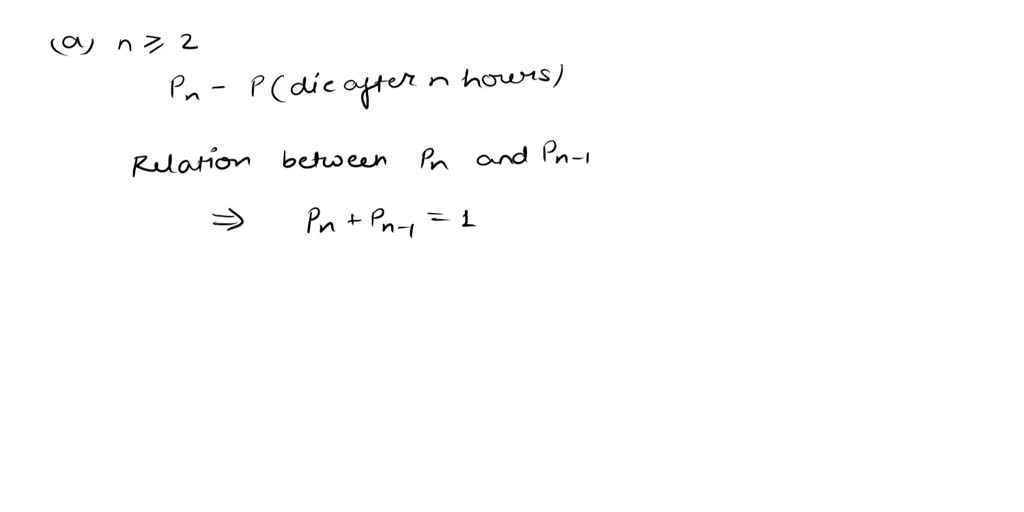 (a) n ⩾ 2
Pn - P(die after n hours)
Relation between Pn and Pn-1
⇒ Pn + Pn-1 = 1